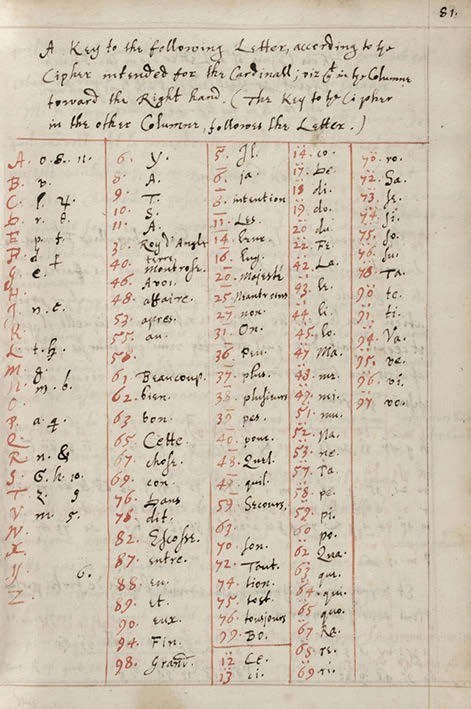 81.
A Key to the following Letter, according to ye
Cipher intended for the Cardinall; viz yt in the Columne
toward the Right hand. (The Key to ye Cipher
in the other Columne, follows the Letter.)
A. o. 8. 11.
B. v.
C.
D. r. 8.
E. p.
F. d
G. e.
H.
I. n. c.
K.
L. t.
M. g.
N. m. b.
O.
P. a. q.
Q.
R. n. &
S. 6. h. 10.
T. z. 9
V. m. 5.
W.
X.
Y. 6.
Z
6. Y.
8. A.
9. T.
10. S.
11. A.
Roy d'Angle
terre.
40. Montrose.
46. Avoi.
48. affaire.
53. apres.
55. au.
58.
61. Beaucoup.
62. bien.
63. bon.
65. Cette.
67. chose.
69. con.
76. Dans
78. dit.
82. Escosse.
87. entre.
88. en.
89. et.
90. eux.
94. Fin.
98. Grand.
5. Il.
6. ja.
8. intention
11. Les.
14. leur.
16. luy.
20. Majesté
25.
27. non.
31. On.
36. Peu.
37. plus.
38. plusieurs
39. pes.
40. pour.
48. Quel.
49. quil.
59. Secours.
63.
70. son.
72. Tout.
74. tion.
75. tost.
76. tousjours
99. Bo.
12. Ce.
13. ci.
14. co.
17. De.
18. di.
19. do.
20. du.
22. Fe.
42. La.
43. le.
44. li.
45. lo.
47. Ma.
48. me.
49. mi.
51. mu.
52. Na.
53. ne.
57. Pa.
58. pe.
59. pi.
60. po.
62. Qua.
63. que.
64. qui.
65. quo.
67. Ra.
68. re.
69. ri.
70. ro.
72. Sa.
73. se.
74. si.
75. so.
76. su.
78. Ta.
90. te.
91. ti.
94. Va.
95. ve.
96. vi.
97. vo.